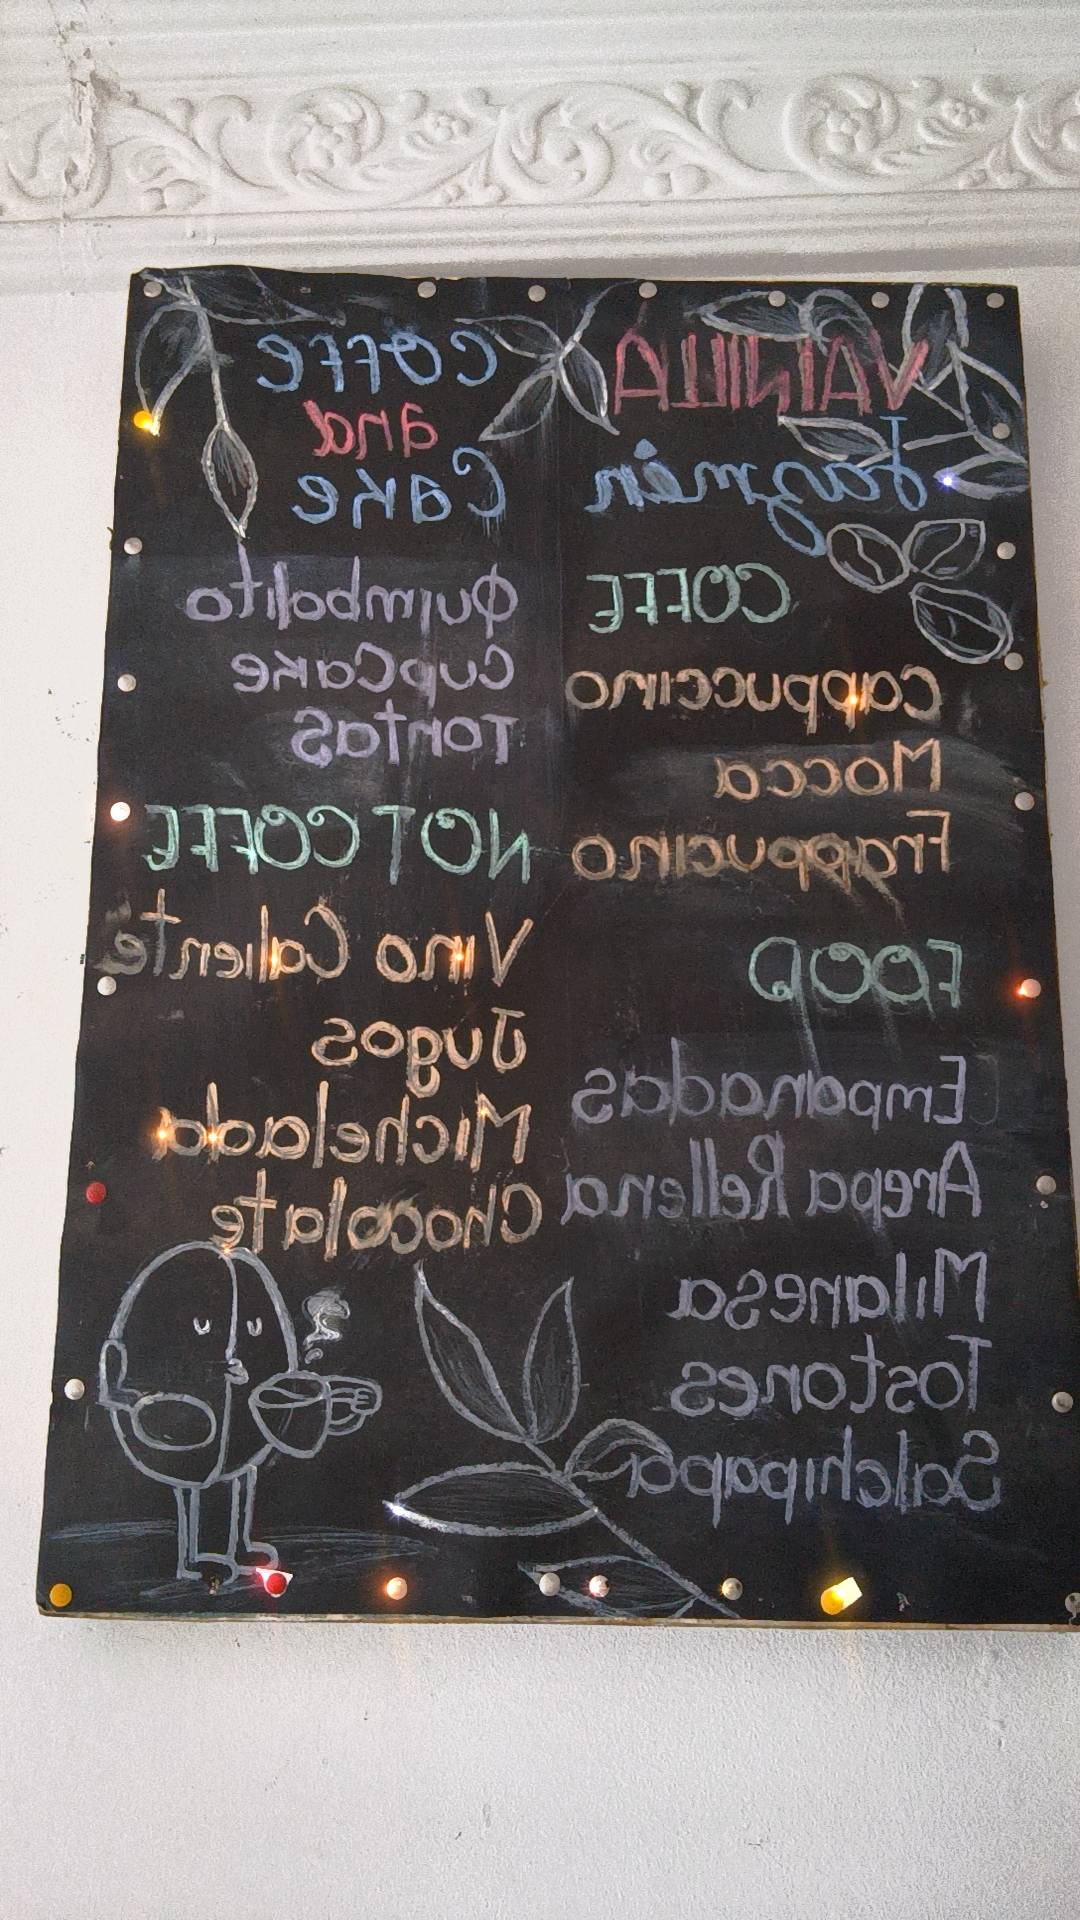 VAINILLA
Jazmín
COFFE
Cappuccino
Mocca
Frappucino
FOOD
Empanadas
Arepa Rellena
Milanesa
Tostones
Salchipapa
COFFE
and
Cake
Quimbolito
CupCake
Tortas
NOT COFFE
Vino Caliente
Jugos
Michelada
Chocolate